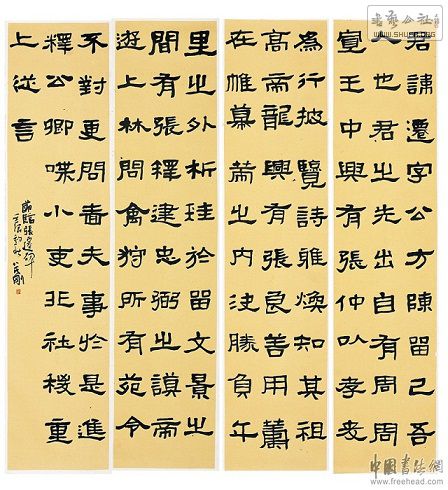 君諱遷字公方陳留己吾
人也君之先出自有周周
宣王中興有張仲以孝友
為行披覽詩雅煥知其祖
高帝龍興有張良善用
在帷幕之內決勝負千
里之外析珪於留文景之
間有張釋建忠弼之謨帝
遊上林問禽狩所有苑令
不對更問嗇夫事於是進
釋公卿喋小吏非社稷重
上從言
臨張遷碑
初秋
书艺公社
WWW.SHUFA.ORG
中国書法網
www.freehead.com